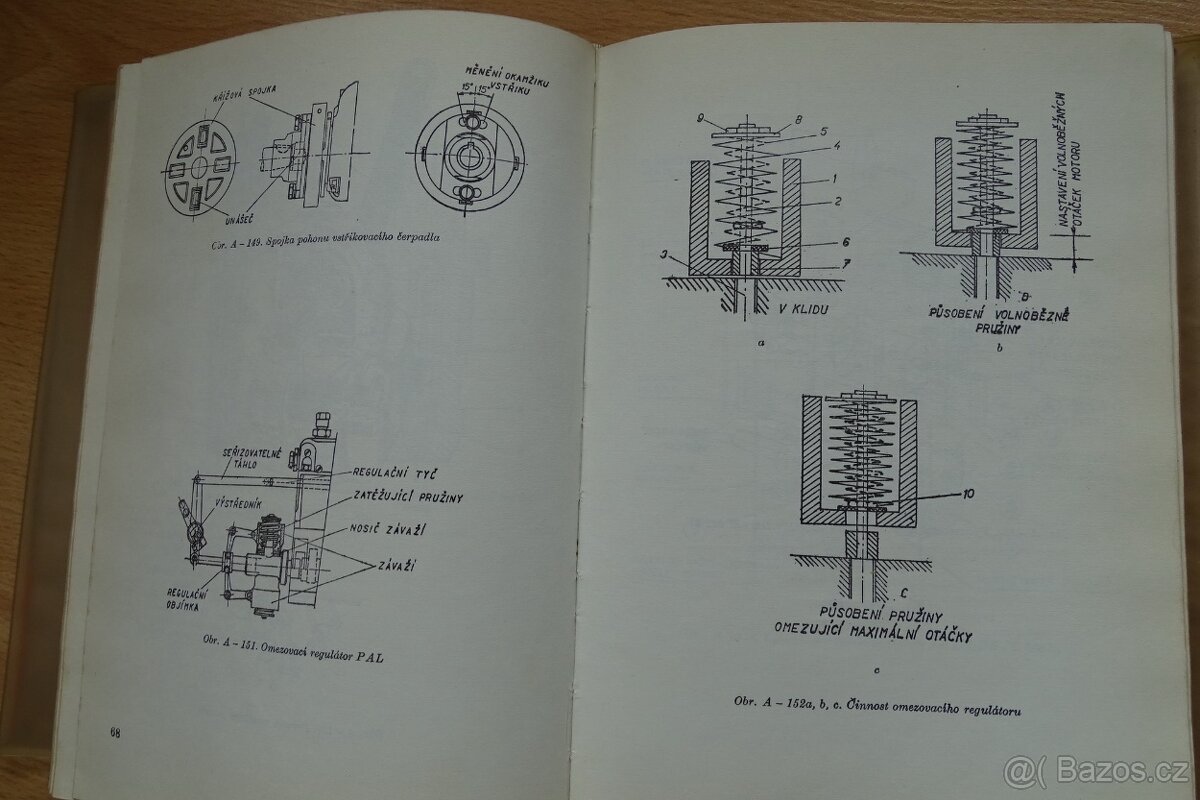 KŘÍŽOVÁ SPOJKA
UNÁŠEČ
MĚNĚNÍ OKAMŽIKU
VSTŘIKU
15° 15°
Obr. A – 149. Spojka pohonu vstřikovacího čerpadla
SEŘIZOVATELNÉ
TÁHLO
VÝSTŘEDNÍK
REGULAČNÍ
OBJÍMKA
REGULAČNÍ TYČ
ZATĚŽUJÍCÍ PRUŽINY
NOSIČ ZÁVAŽÍ
ZÁVAŽÍ
Obr. A – 151. Omezovací regulátor PAL
68
9
8
5
4
1
2
6
3
7
V KLIDU
a
NASTAVENÍ VOLNOBĚŽNÝCH
OTÁČEK MOTORU
B
PŮSOBENÍ VOLNOBĚŽNÉ
PRUŽINY
b
10
C
PŮSOBENÍ PRUŽINY
OMEZUJÍCÍ MAXIMÁLNÍ OTÁČKY
c
Obr. A – 152a, b, c. Činnost omezovacího regulátoru
@( Bazos.cz